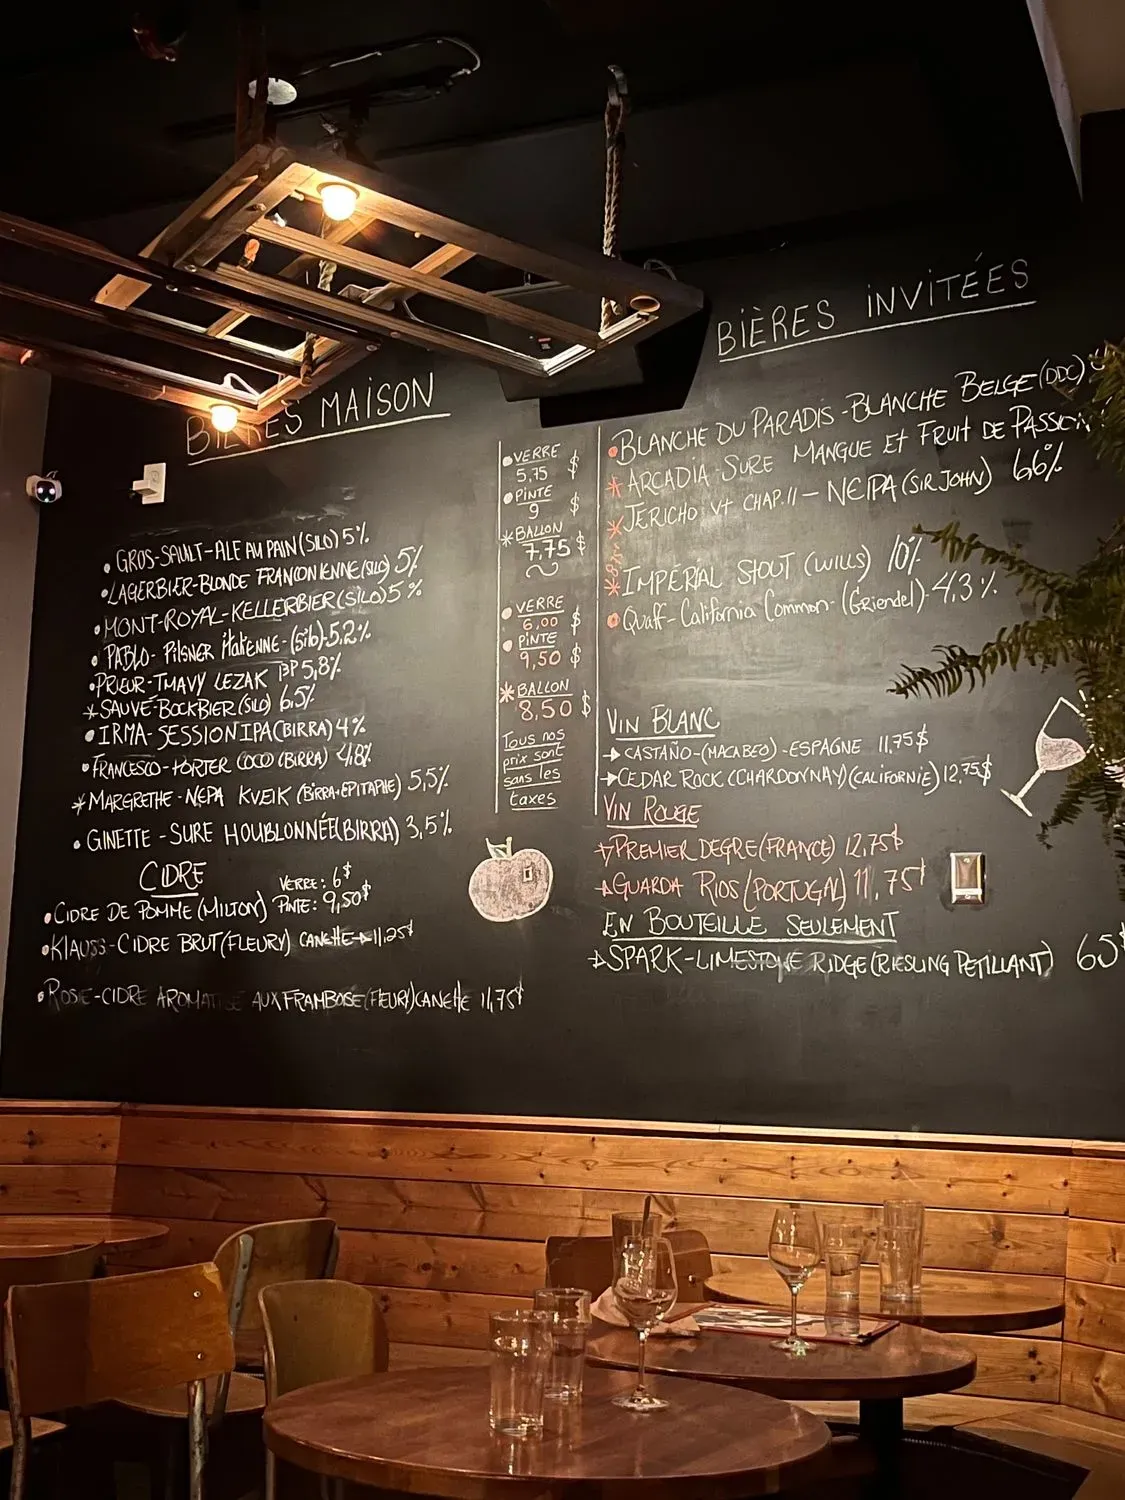 BIÈRES MAISON
• GROS-SAULT-ALE AU PAIN (SILO) 5%
• LAGERBIER-BLONDE FRANCONIENNE (SILO) 5%
• MONT-ROYAL-KELLERBIER (SILO) 5%
• PABLO- PILSNER Italienne-(Silo)-5,2%
• PRIEUR-TMAVY LEZAK BP 5,8%
* SAUVÉ-BOCKBIER (SILO) 6,5%
• IRMA-SESSION IPA (BIRRA) 4%
• FRANCESCO-PORTER COCO (BIRRA) 4,8%
* MARGRETHE-NEPA KVEIK (BIRRA+EPITAPHE) 5,5%
• GINETTE-SURE HOUBLONNÉE (BIRRA) 3,5%
CIDRE
VERRE: 6$
• CIDRE DE POMME (MILTON) PINTE: 9,50$
• KLAUSS-CIDRE BRUT (FLEURY) CANETTE→11,25$
• ROSIE-CIDRE AROMATISÉ AUX FRAMBOISE (FLEURY) CANETTE 11,75$
• VERRE
5,75 $
• PINTE
9 $
* BALLON
7,75 $
• VERRE
6,00 $
• PINTE
9,50 $
* BALLON
8,50 $
Tous nos
prix sont
sans les
taxes
BIÈRES INVITÉES
• BLANCHE DU PARADIS-BLANCHE BELGE (DDC)
* ARCADIA-SURE MANGUE ET FRUIT DE PASSION
* JERICHO V+ CHAP. 11 – NEIPA (SIR JOHN) 6,6%
* IMPÉRIAL STOUT (WILLS) 10%
• Quaff-California Common-(Griendel)-4,3%
VIN BLANC
→ CASTAÑO-(MACABEO)-ESPAGNE 11,75$
→ CEDAR ROCK (CHARDONNAY) (CALIFORNIE) 12,75$
VIN ROUGE
→ PREMIER DEGRE (FRANCE) 12,75$
→ GUARDA RIOS (PORTUGAL) 11,75$
EN BOUTEILLE SEULEMENT
→ SPARK-LIMESTONE RIDGE (RIESLING PETILLANT) 65$